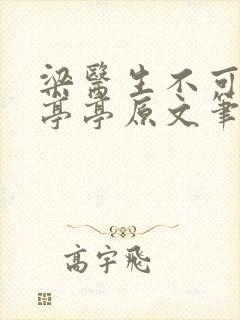 梁醫生不可
亭亭原文筆
高宇飛